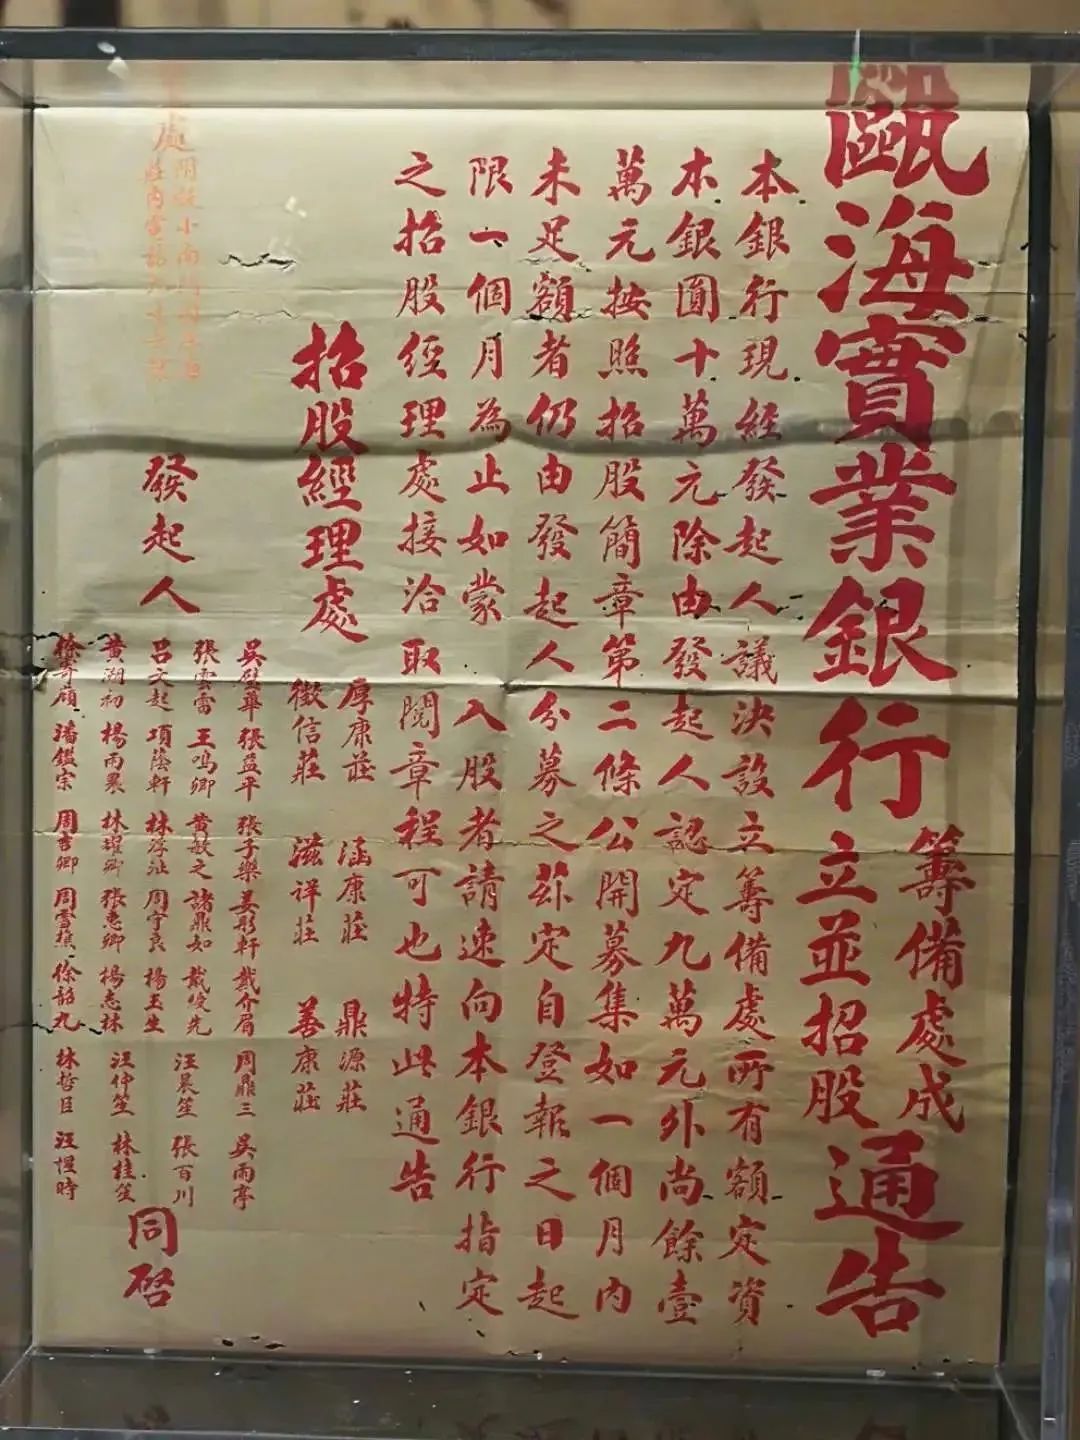 甌海實業銀行籌備處成立並招股通告
本銀行現經發起人議決設立籌備處所有額定資
本銀圓十萬元除由發起人認定九萬元外尚餘壹
萬元按照招股簡章第二條公開募集如一個月內
未足額者仍由發起人分募之茲定自登報之日起
限一個月為止如蒙入股者請速向本銀行指定
之招股經理處接洽取閱章程可也特此通告
招股經理處
厚康莊 涵康莊 鼎源莊
徵信莊 滋祥莊 善康莊
發起人
吳璧華 張益平 張子樂 姜彤軒 戴介眉 周鼎三 吳雨亭
張雲雷 王鳴卿 黃敏之 諸鼎如 戴綬先 汪晨笙 張百川
呂文起 項蔭軒 林浮沚 周守良 楊玉生 汪仲笙 林桂笙
黃溯初 楊雨農 林耀卿 張惠卿 楊志林
徐寄廎 潘鑑宗 周吉卿 周雪蕉 徐韶九 林哲臣 汪惺時
同啓
處